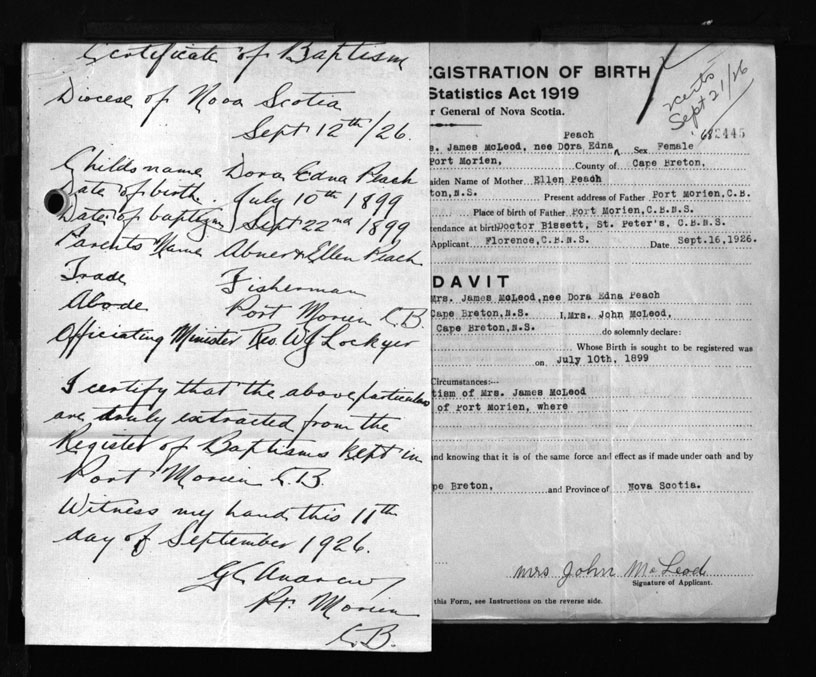 Certificate of Baptism
Diocese of Nova Scotia
Sept 12th/26.
Childs name Dora Edna Peach
Date of birth. July 10th 1899
Date of baptism Sept 22nd 1899
Parents Name Abner & Ellen Peach
Trade Fisherman
Abode Port Morien C.B.
Officiating Minister Rev. W J Lockyer
I certify that the above particulars
are truly extracted from the
Register of Baptisms kept in
Port Morien C.B.
Witness my hand this 11th
day of September 1926.
Pt. Morien
C.B.
EGISTRATION OF BIRTH
Statistics Act 1919
r General of Nova Scotia.
Sept 21/26
2445
Peach
s. James McLeod, nee Dora Edna ^ Sex Female
Port Morien, County of Cape Breton,
aiden Name of Mother Ellen Peach
ton, N.S. Present address of Father Port Morien, C.B.
Place of birth of Father Port Morien, C.B.N.S.
tendance at birth Doctor Bissett, St. Peter's, C.B.N.S.
Applicant Florence, C.B.N.S. Date Sept.16,1926.
DAVIT
Mrs. James McLeod, nee Dora Edna Peach
Cape Breton, N.S. I, Mrs. John McLeod,
Cape Breton, N.S. do solemnly declare:
Whose Birth is sought to be registered was
on July 10th, 1899
Circumstances:--
tism of Mrs. James McLeod
of Port Morien, where
and knowing that it is of the same force and effect as if made under oath and by
pe Breton, and Province of Nova Scotia.
Mrs John McLeod
Signature of Applicant.
this Form, see Instructions on the reverse side.